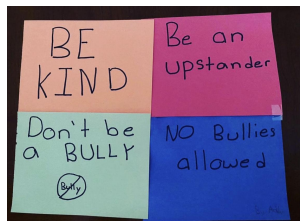 BE
KIND
Be an
upstander
Don't be
a BULLY
Bully
NO Bullies
allowed